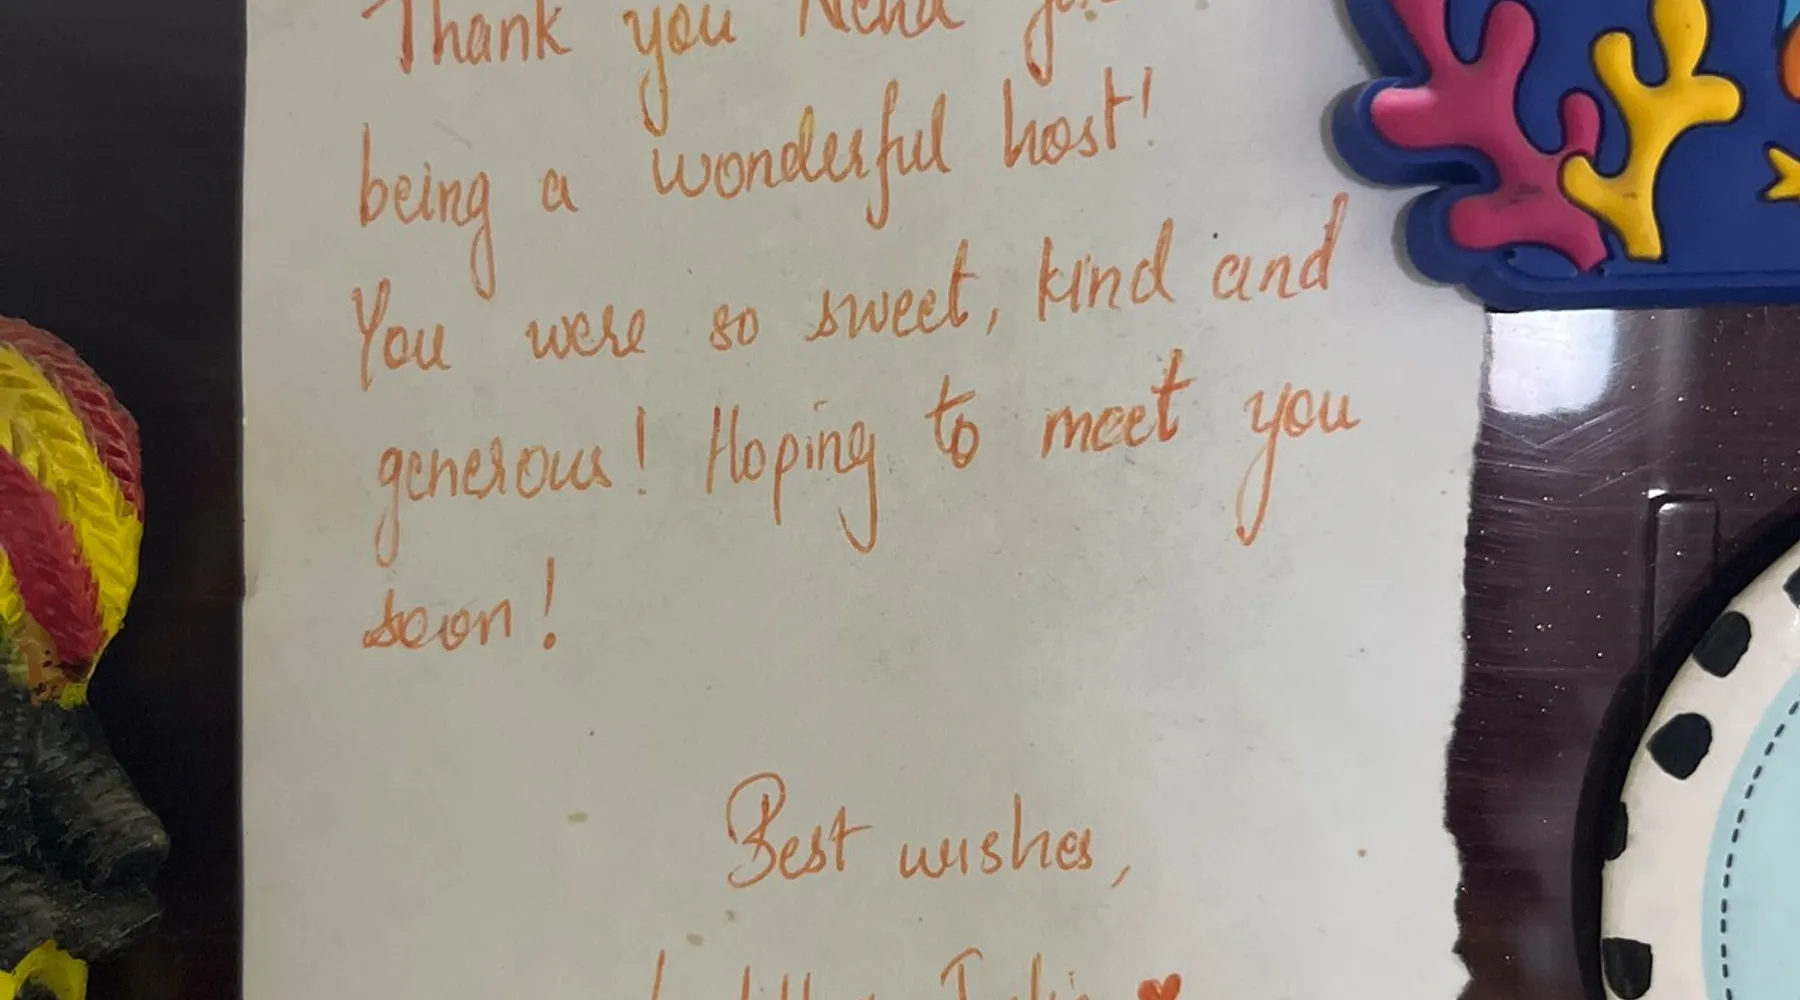 Thank you Neha for
being a wonderful host!
You were so sweet, kind and
generous! Hoping to meet you
soon!
Best wishes,